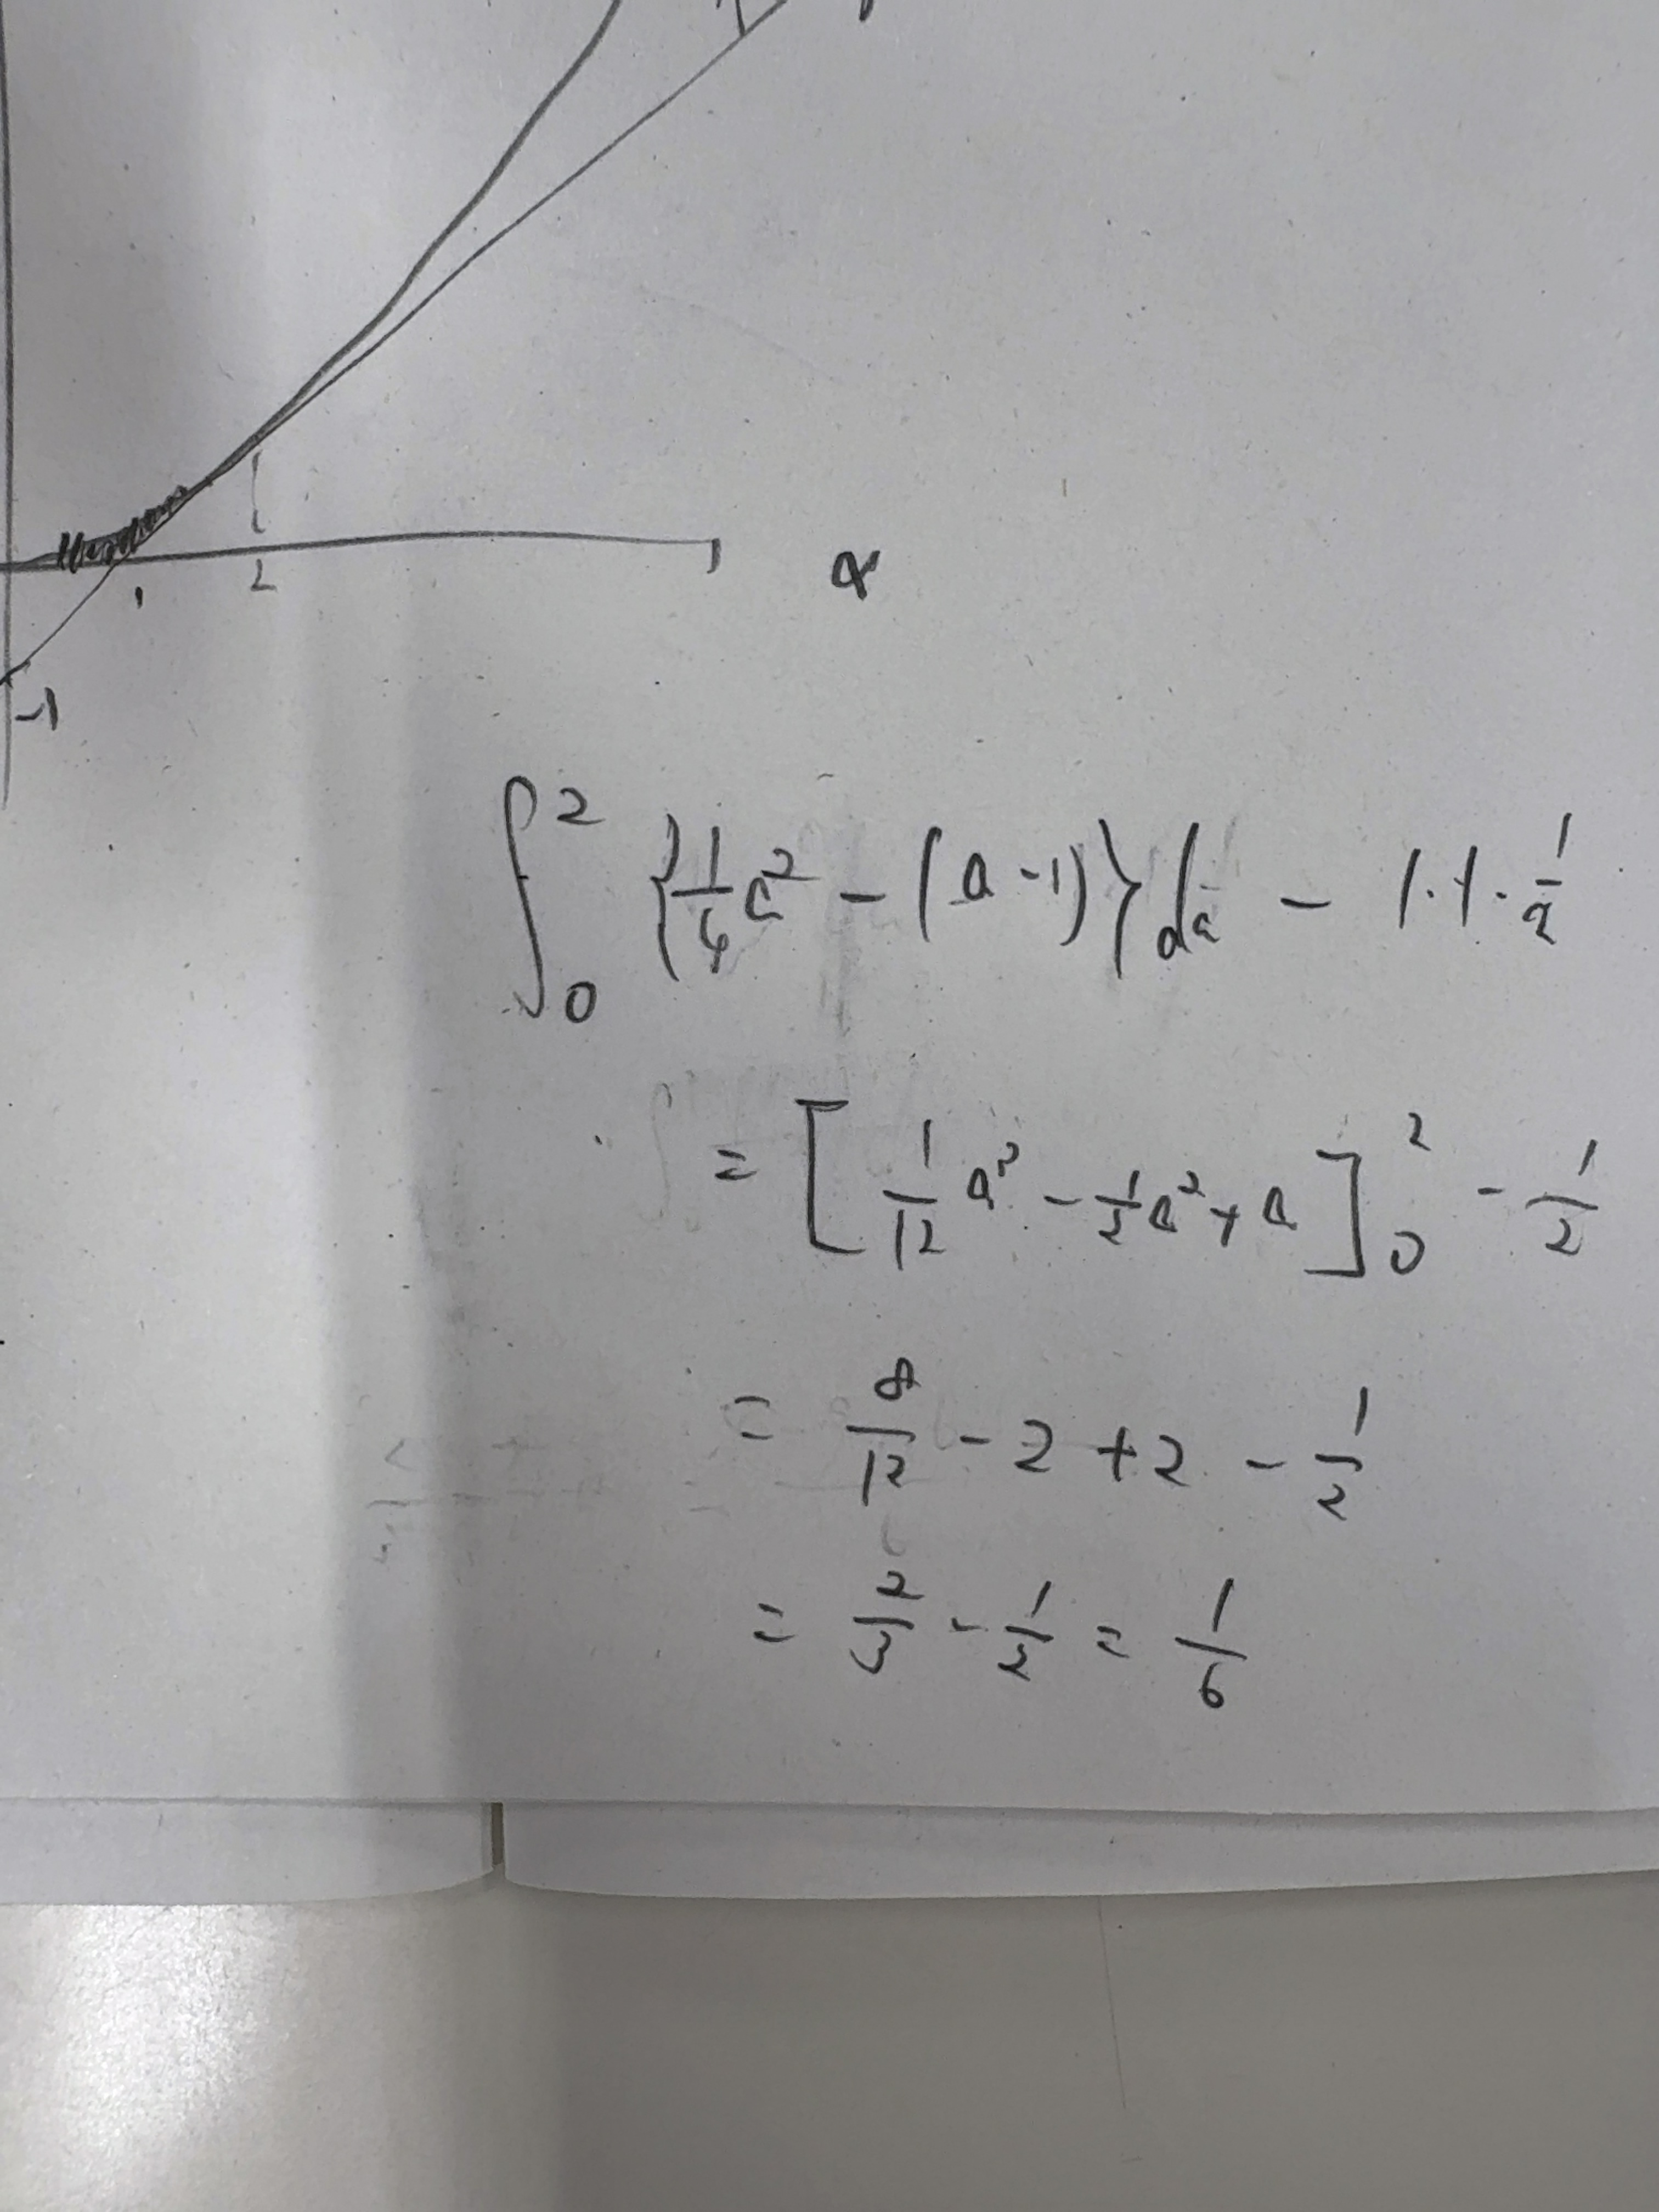 1
2
a
-1
∫₀² {1/4 a² - (a - 1)} da - 1·1·1/2
= [1/12 a³ - 1/2 a² + a]₀² - 1/2
= 8/12 - 2 + 2 - 1/2
= 2/3 - 1/2 = 1/6